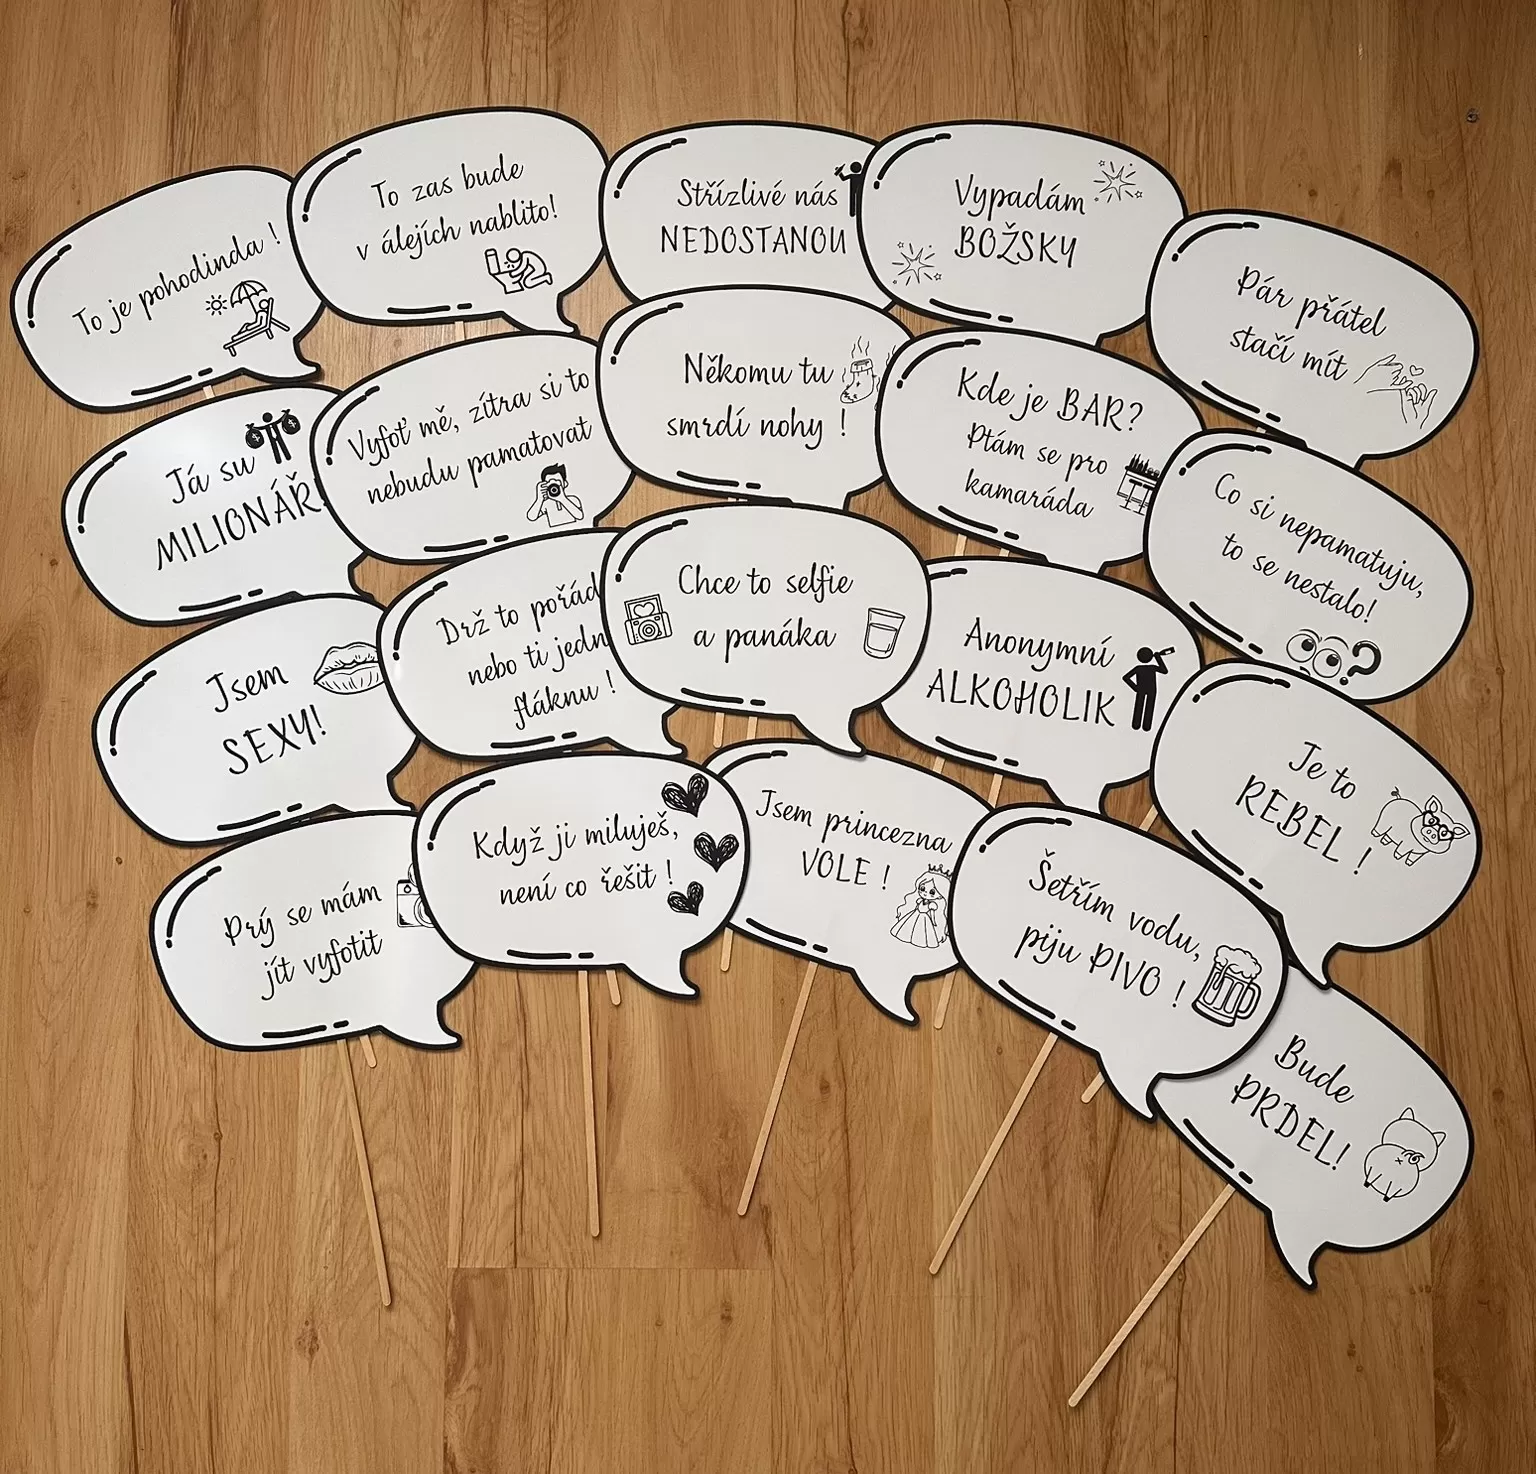 To je pohodinda !
To zas bude
v álejích nablito!
Střízlivé nás
NEDOSTANOU
Vypadám
BOŽSKY
Pár přátel
stačí mít
Já su
MILIONÁŘ
Vyfoť mě, zítra si to
nebudu pamatovat
Někomu tu
smrdí nohy !
Kde je BAR?
Ptám se pro
kamaráda
Co si nepamatuju,
to se nestalo!
?
Jsem
SEXY!
Drž to pořád
nebo ti jedn
fláknu !
Chce to selfie
a panáka
Anonymní
ALKOHOLIK
Je to
REBEL !
Prý se mám
jít vyfotit
Když ji miluješ,
není co řešit !
Jsem princezna
VOLE !
Šetřím vodu,
piju PIVO !
Bude
PRDEL!